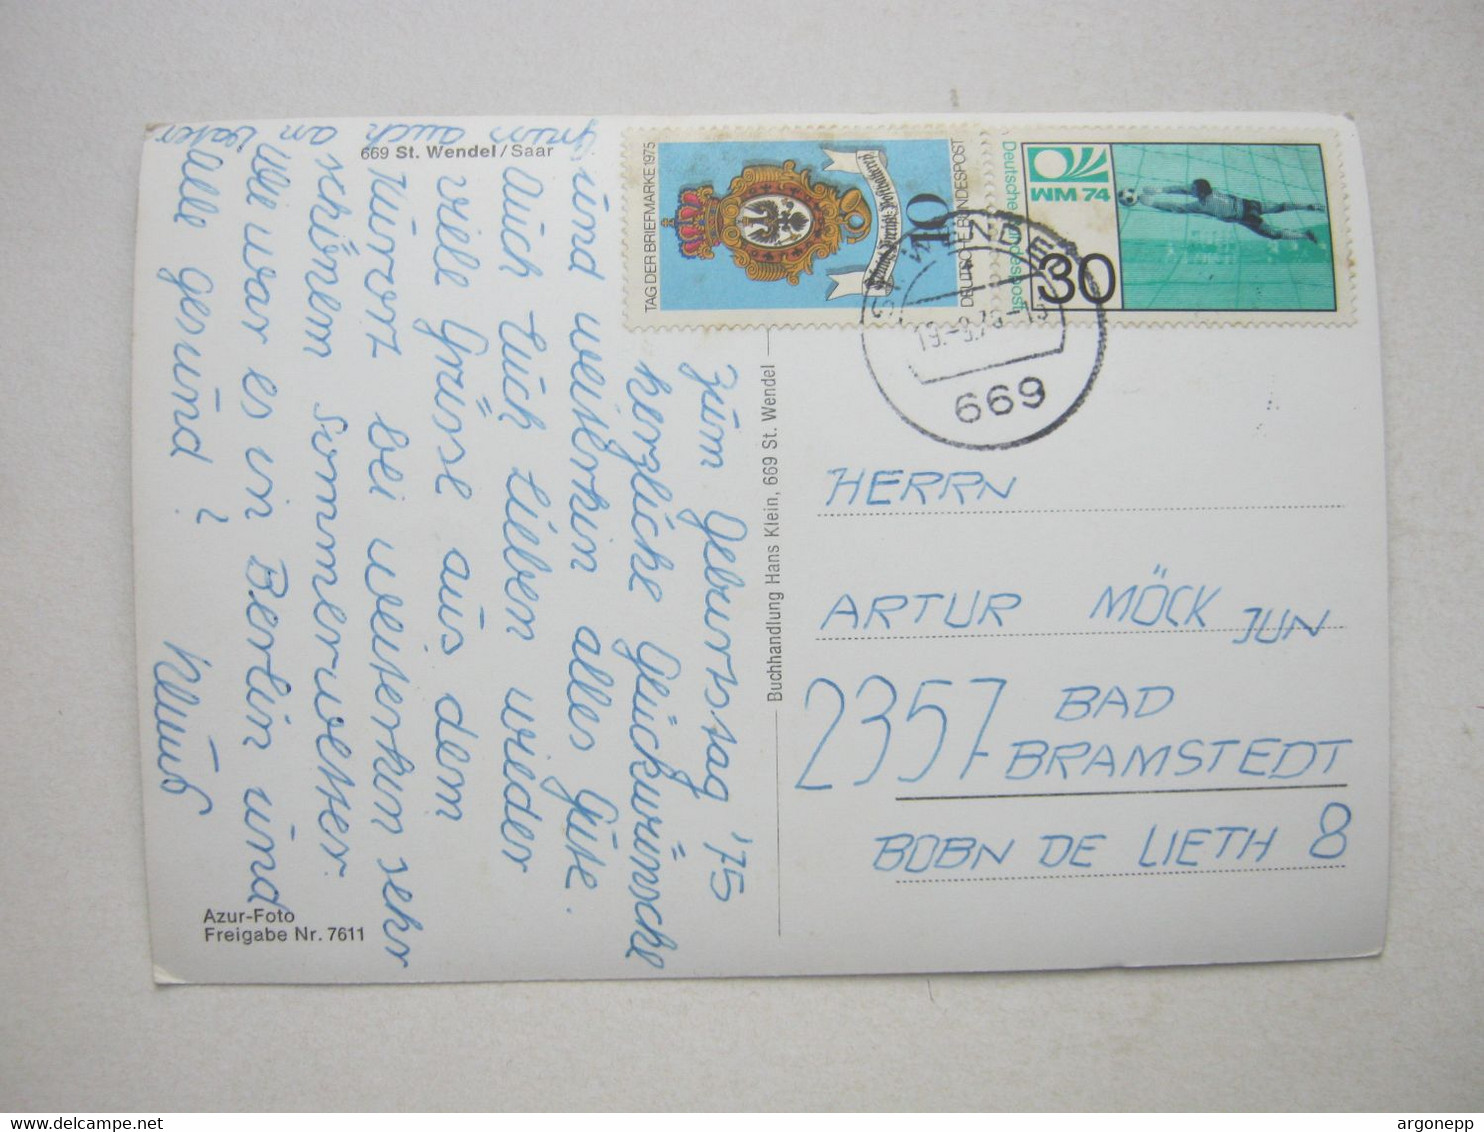 669 St. Wendel/Saar
Zum Geburtstag '75
herzliche Glückwünsche
und weiterhin alles Gute.
Auch Euch Lieben wieder
viele Grüsse aus dem
Kurort bei weiterhin sehr
schönem Sommerwetter.
Wie war es in Berlin und
Alle gesund?
Gruss auch
an Vater
Azur-Foto
Freigabe Nr. 7611
Buchhandlung Hans Klein, 669 St. Wendel
TAG DER BRIEFMARKE 1975
10
DEUTSCHE BUNDESPOST
Deutsche Bundespost
WM 74
30
ST. WENDEL
669
HERRN
ARTUR MÖCK JUN
2357 BAD
BRAMSTEDT
BOBN DE LIETH 8
www.delcampe.net
argonepp